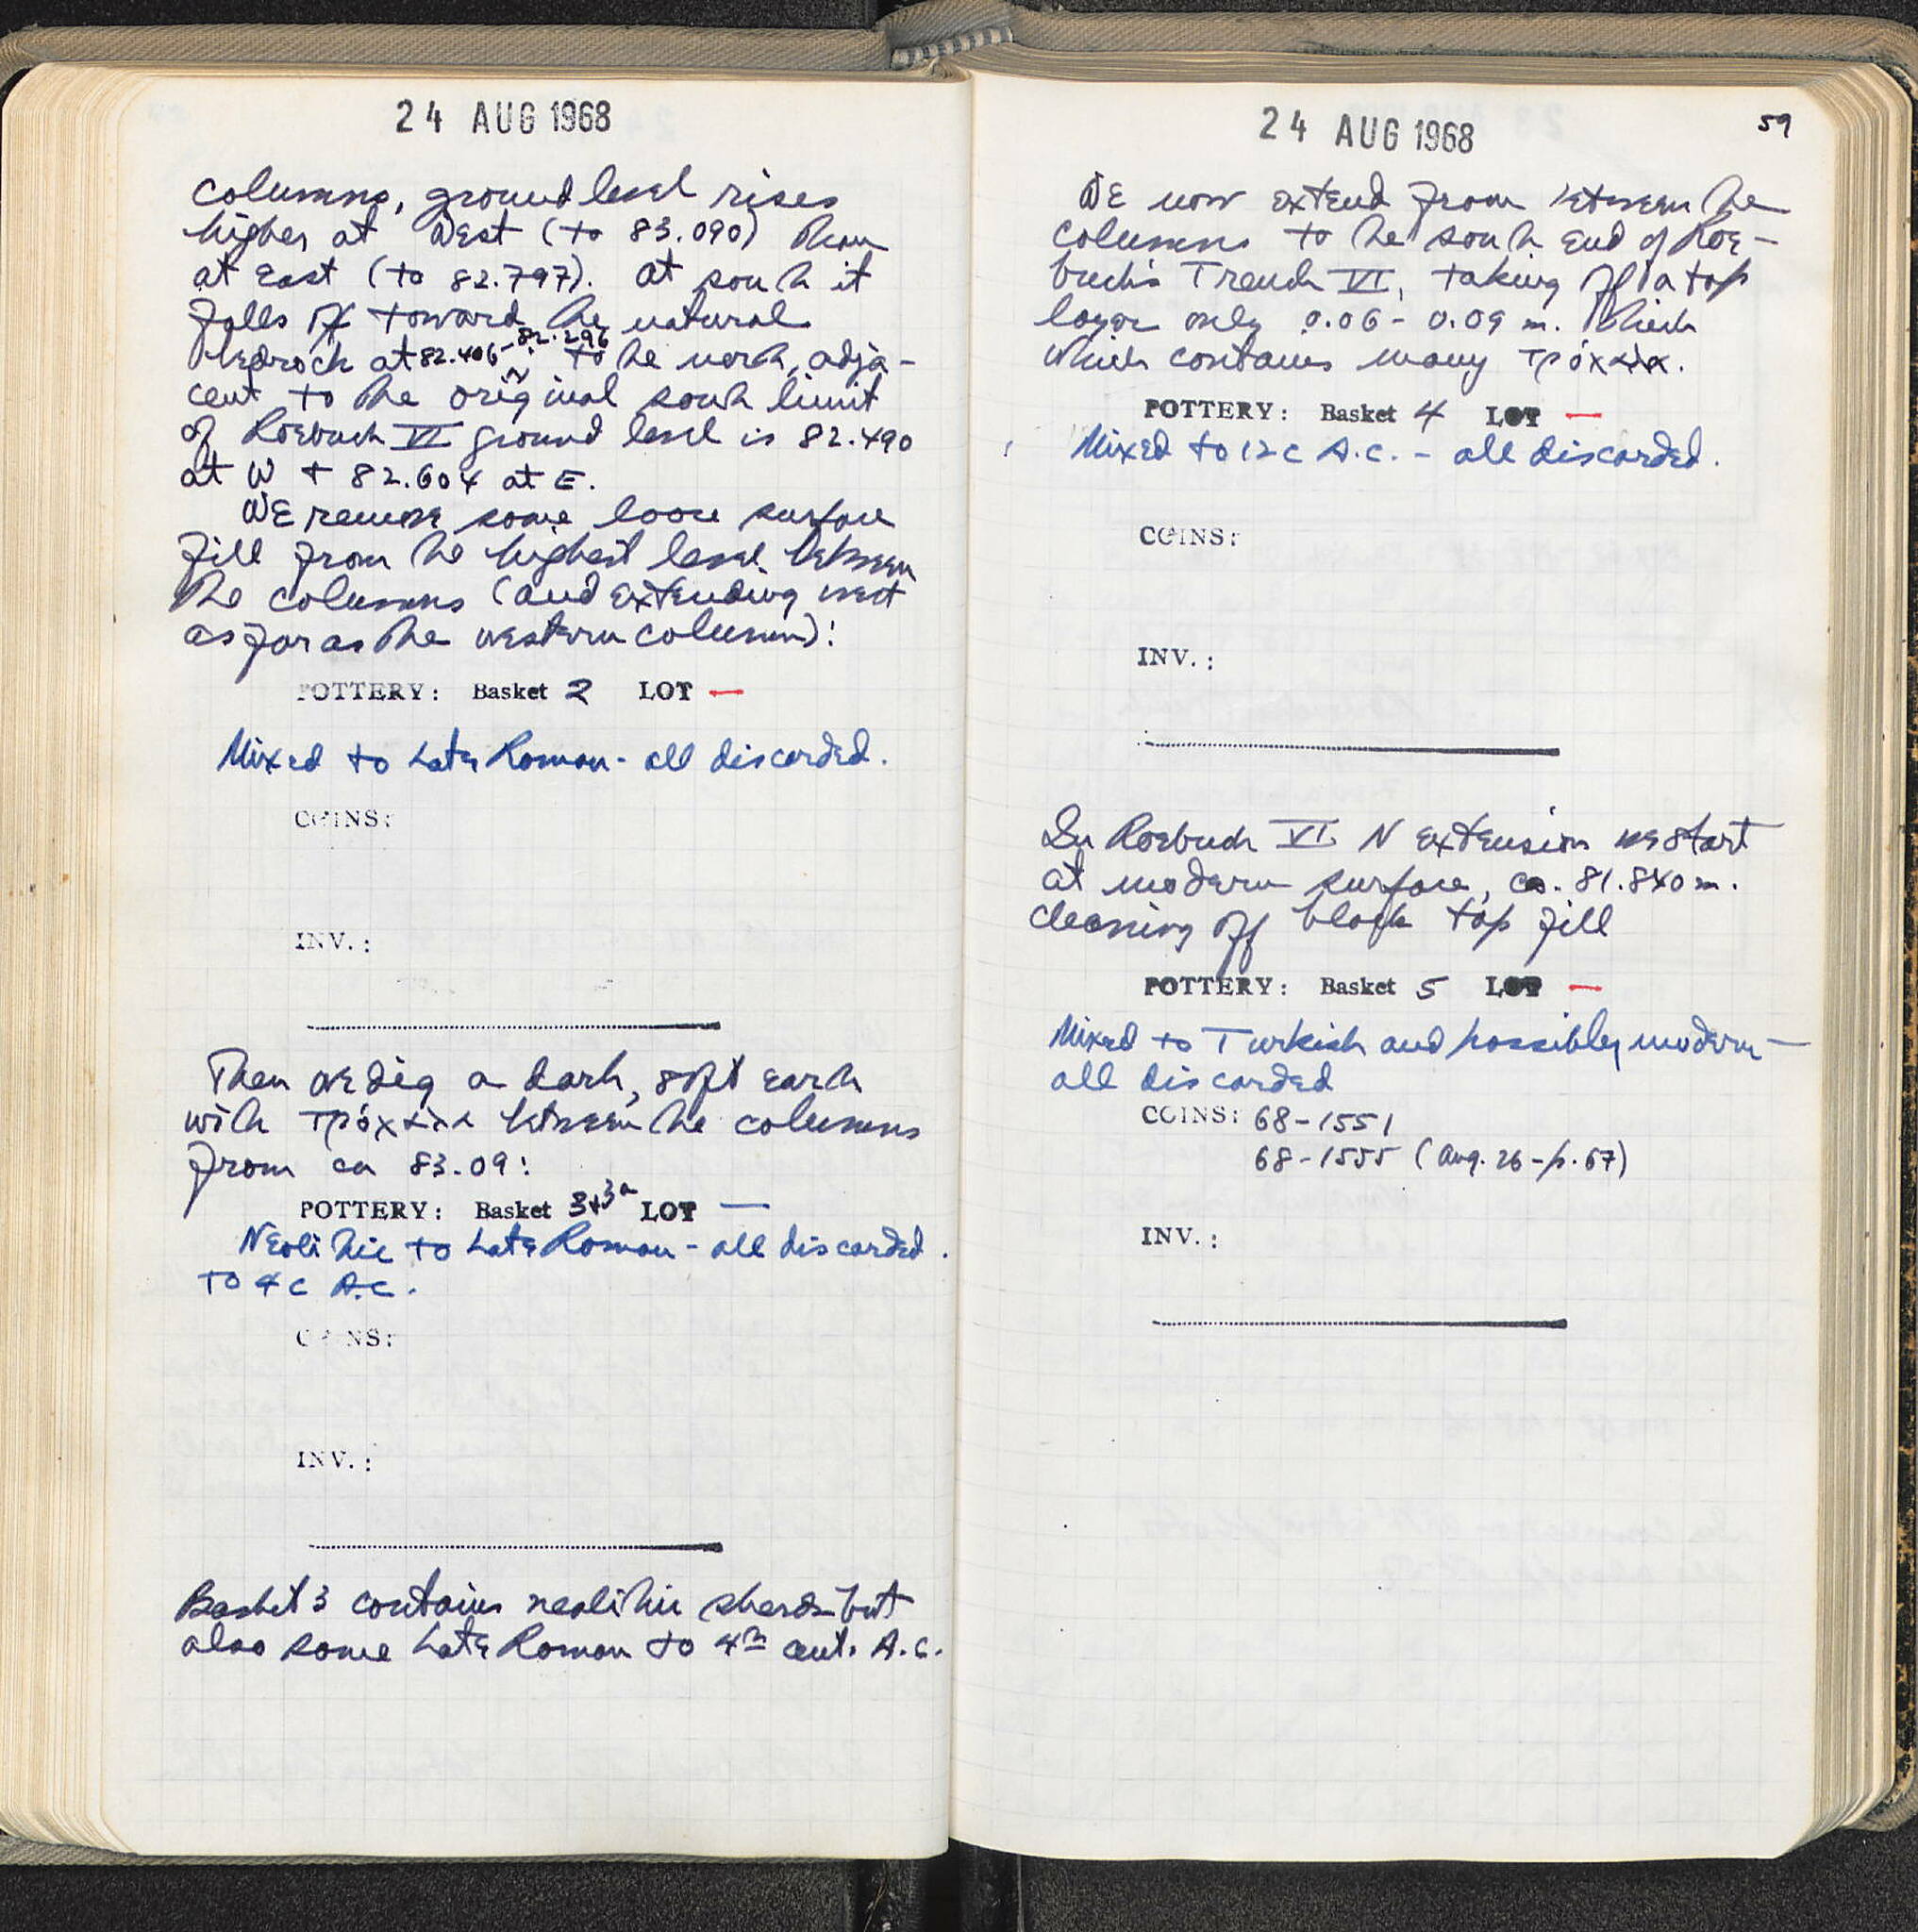 24 AUG 1968
columns, ground level rises
higher at West (to 83.090) than
at East (to 82.797). At south it
falls off toward the natural
bedrock at 82.406-82.296 to the north, adja-
cent to the original south limit
of Roebuck VI ground level is 82.490
at W + 82.604 at E.
We remove some loose surface
fill from the highest level between
the columns (and extending west
as far as the western column):
POTTERY: Basket 2 LOT —
Mixed to Late Roman - all discarded.
COINS:
INV.:
Then we dig a dark, soft earth
with τρόχαλα between the columns
from ca 83.09:
POTTERY: Basket 3+3a LOT —
Neolithic to Late Roman - all discarded.
to 4c A.C.
COINS:
INV.:
Basket 3 contains neolithic sherds but
also some Late Roman to 4th cent. A.C.
24 AUG 1968
59
We now extend from between the
columns to the south end of Roe-
buck's Trench VI, taking off a top
layer only 0.06 - 0.09 m. thick
which contains many τρόχαλα.
POTTERY: Basket 4 LOT —
Mixed to 12c A.C. - all discarded.
COINS:
INV.:
In Roebuck VI N extension we start
at modern surface, ca. 81.840 m.
cleaning off black top fill
POTTERY: Basket 5 LOT —
Mixed to Turkish and possibly modern —
all discarded
COINS: 68-1551
68-1555 (Aug. 26 - p. 67)
INV.: